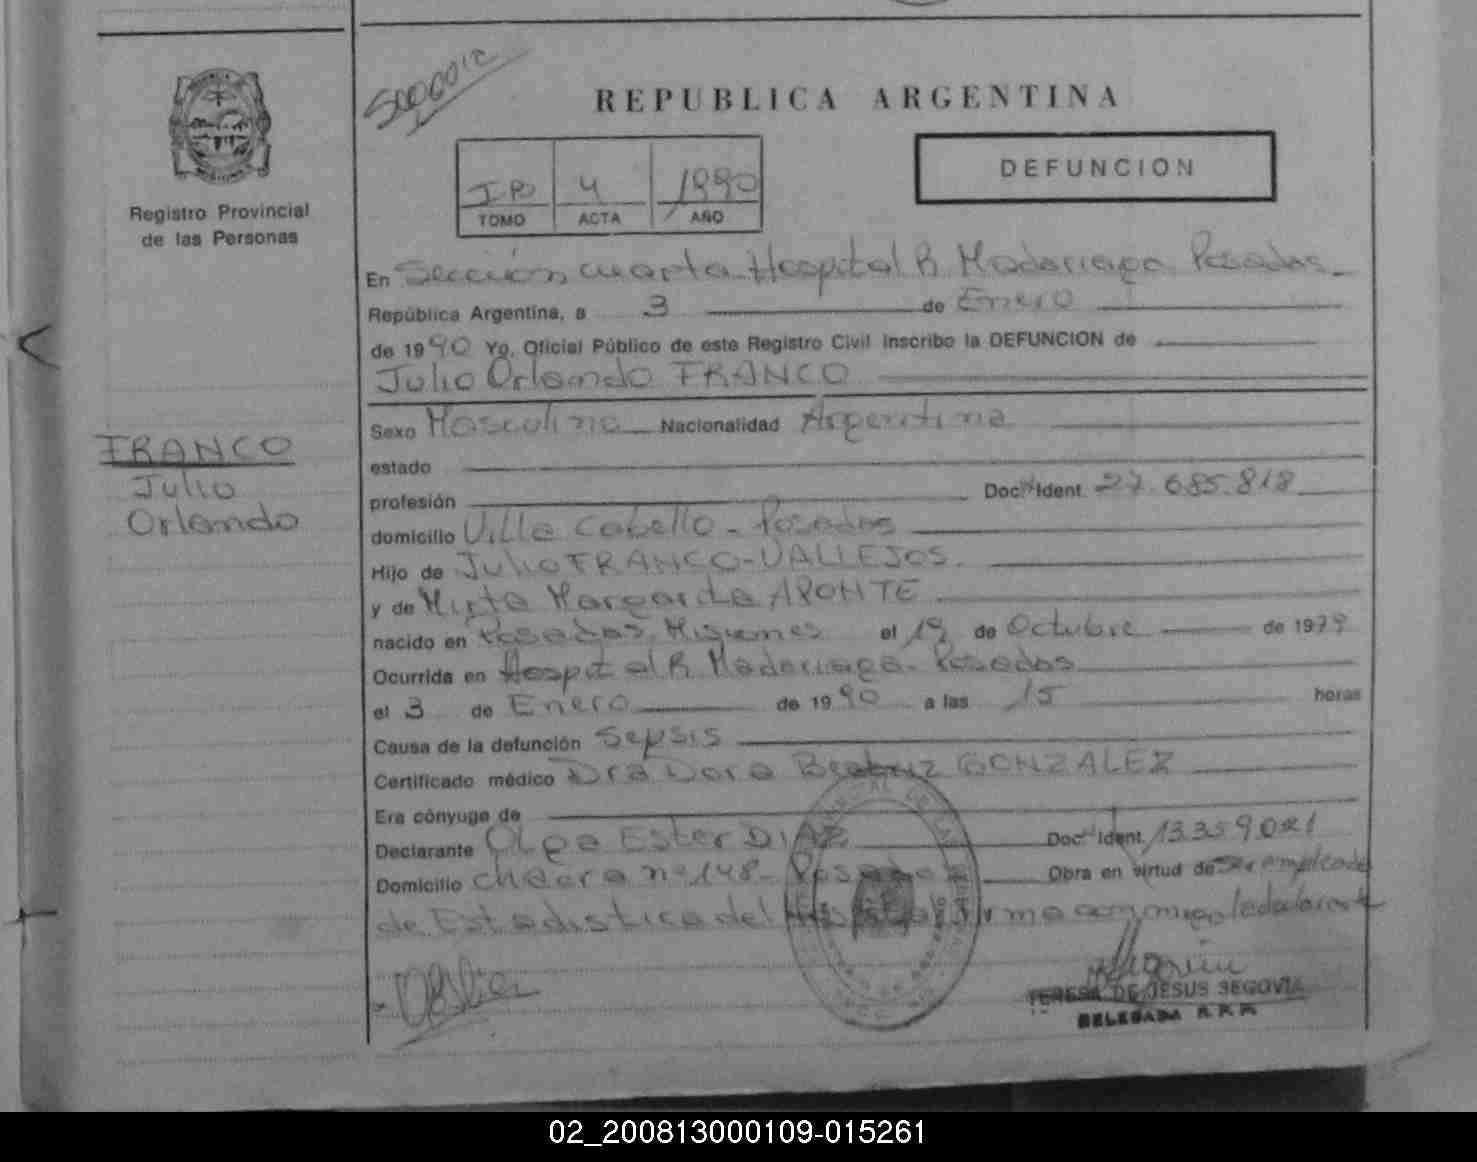 REPUBLICA ARGENTINA
DEFUNCION
Registro Provincial
de las Personas
4 1990
TOMO ACTA AÑO
En Sección cuarta Hospital R. Madariaga Posadas
República Argentina, a 3 de Enero
de 1990 Yo, Oficial Público de este Registro Civil inscribo la DEFUNCION de
Julio Orlando FRANCO
FRANCO
Julio
Orlando
Sexo Masculino Nacionalidad Argentina
estado
profesión Doc. Ident. 27.685.818
domicilio Villa Cabello - Posadas
Hijo de Julio FRANCO-VALLEJOS.
y de Mirta Margarita APONTE.
nacido en Posadas, Misiones el 19 de Octubre de 1979
Ocurrida en Hospital R. Madariaga - Posadas
el 3 de Enero de 1990 a las 15 horas
Causa de la defunción Sepsis
Certificado médico Dra Dora Beatriz GONZALEZ
Era cónyuge de
Declarante Olga Ester DIAZ Doc. Ident. 13359021
Domicilio chacra nº 148 - Posadas Obra en virtud de ser empleada
de Estadistica del Hospital firma conmigo la declarante
TERESA DE JESUS SEGOVIA
DELEGADA R.P.P.
02_200813000109-015261